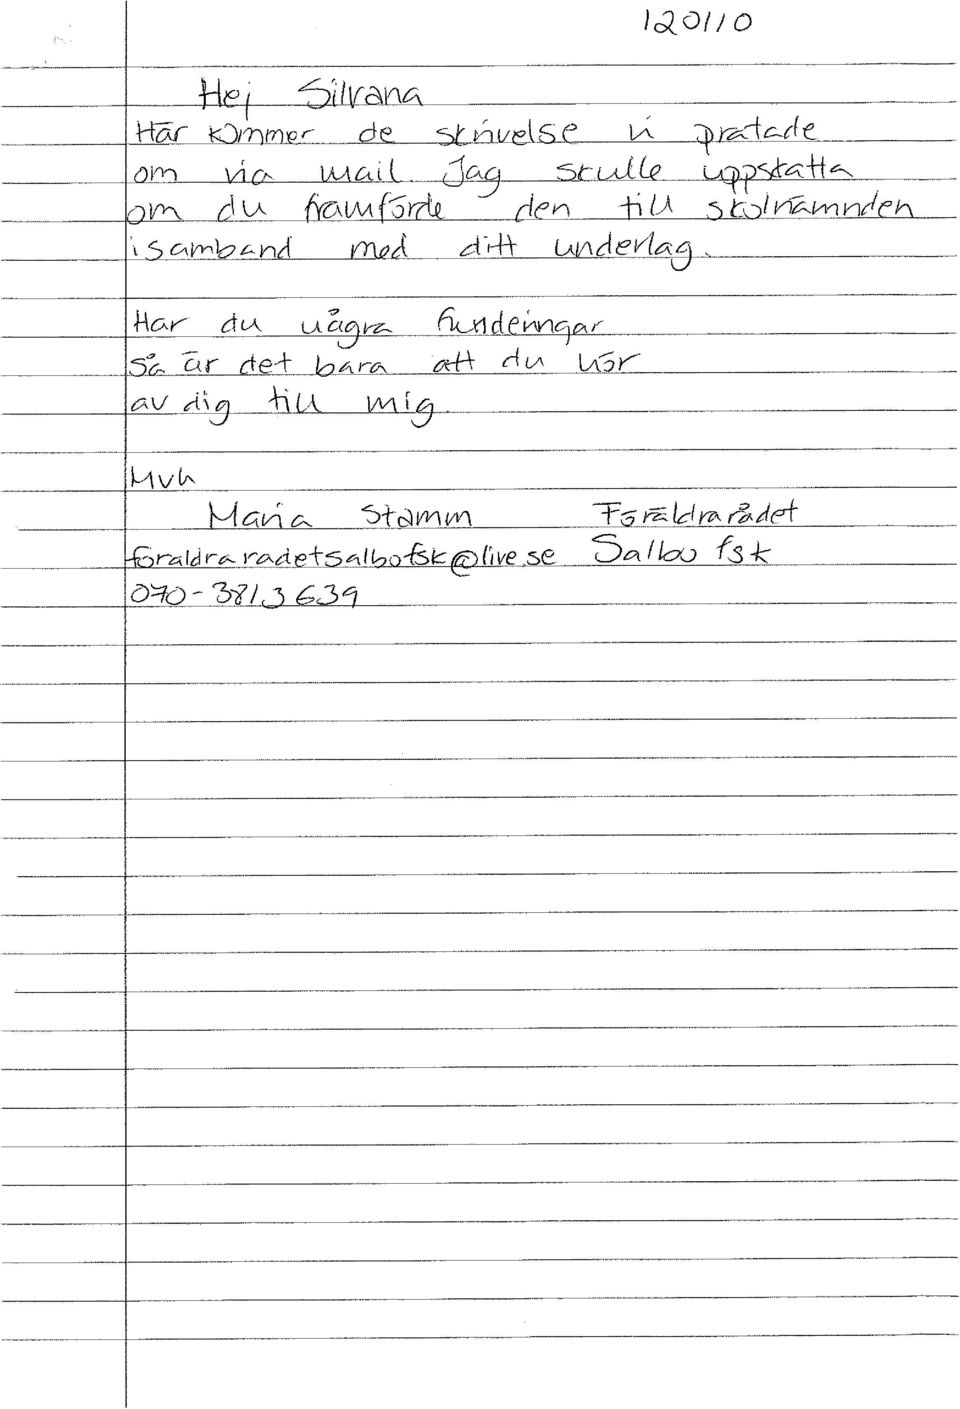 120110
Hej Silvana
Här kommer de skrivelse vi pratade
om via mail. Jag skulle uppskatta
om du framförde den till skolnämnden
isamband med ditt underlag.
Har du några funderingar
så är det bara att du hör
av dig till mig.
Mvh
Maria Stamm Föräldrarådet
foraldraradetsalbofsk@live.se Salbo fsk
070-3813639